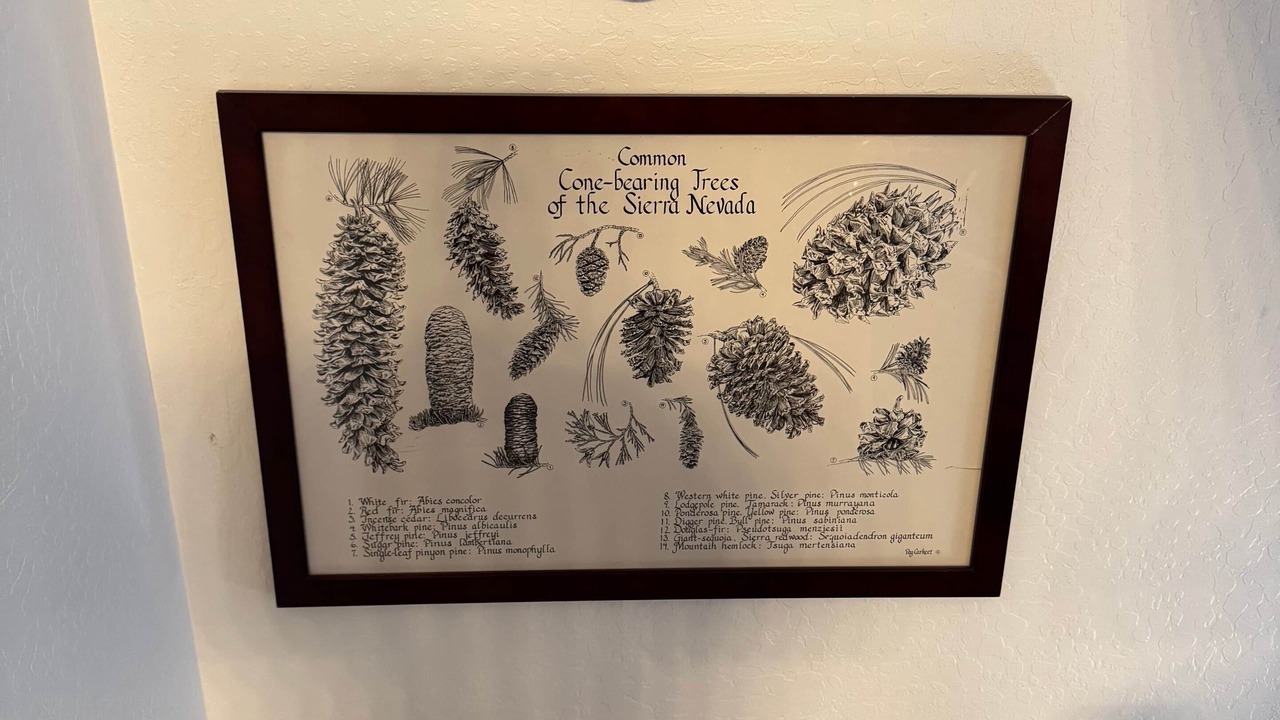 Common
Cone-bearing Trees
of the Sierra Nevada
1. White fir: Abies concolor
2. Red fir: Abies magnifica
3. Incense cedar: Libocedrus decurrens
4. Whitebark pine: Pinus albicaulis
5. Jeffrey pine: Pinus jeffreyi
6. Sugar pine: Pinus lambertiana
7. Single-leaf pinyon pine: Pinus monophylla
8. Western white pine. Silver pine: Pinus monticola
9. Lodgepole pine. Tamarack: Pinus murrayana
10. Ponderosa pine. Yellow pine: Pinus ponderosa
11. Digger pine. Bull pine: Pinus sabiniana
12. Douglas-fir: Pseudotsuga menziesii
13. Giant-sequoia. Sierra redwood: Sequoiadendron giganteum
14. Mountain hemlock: Tsuga mertensiana